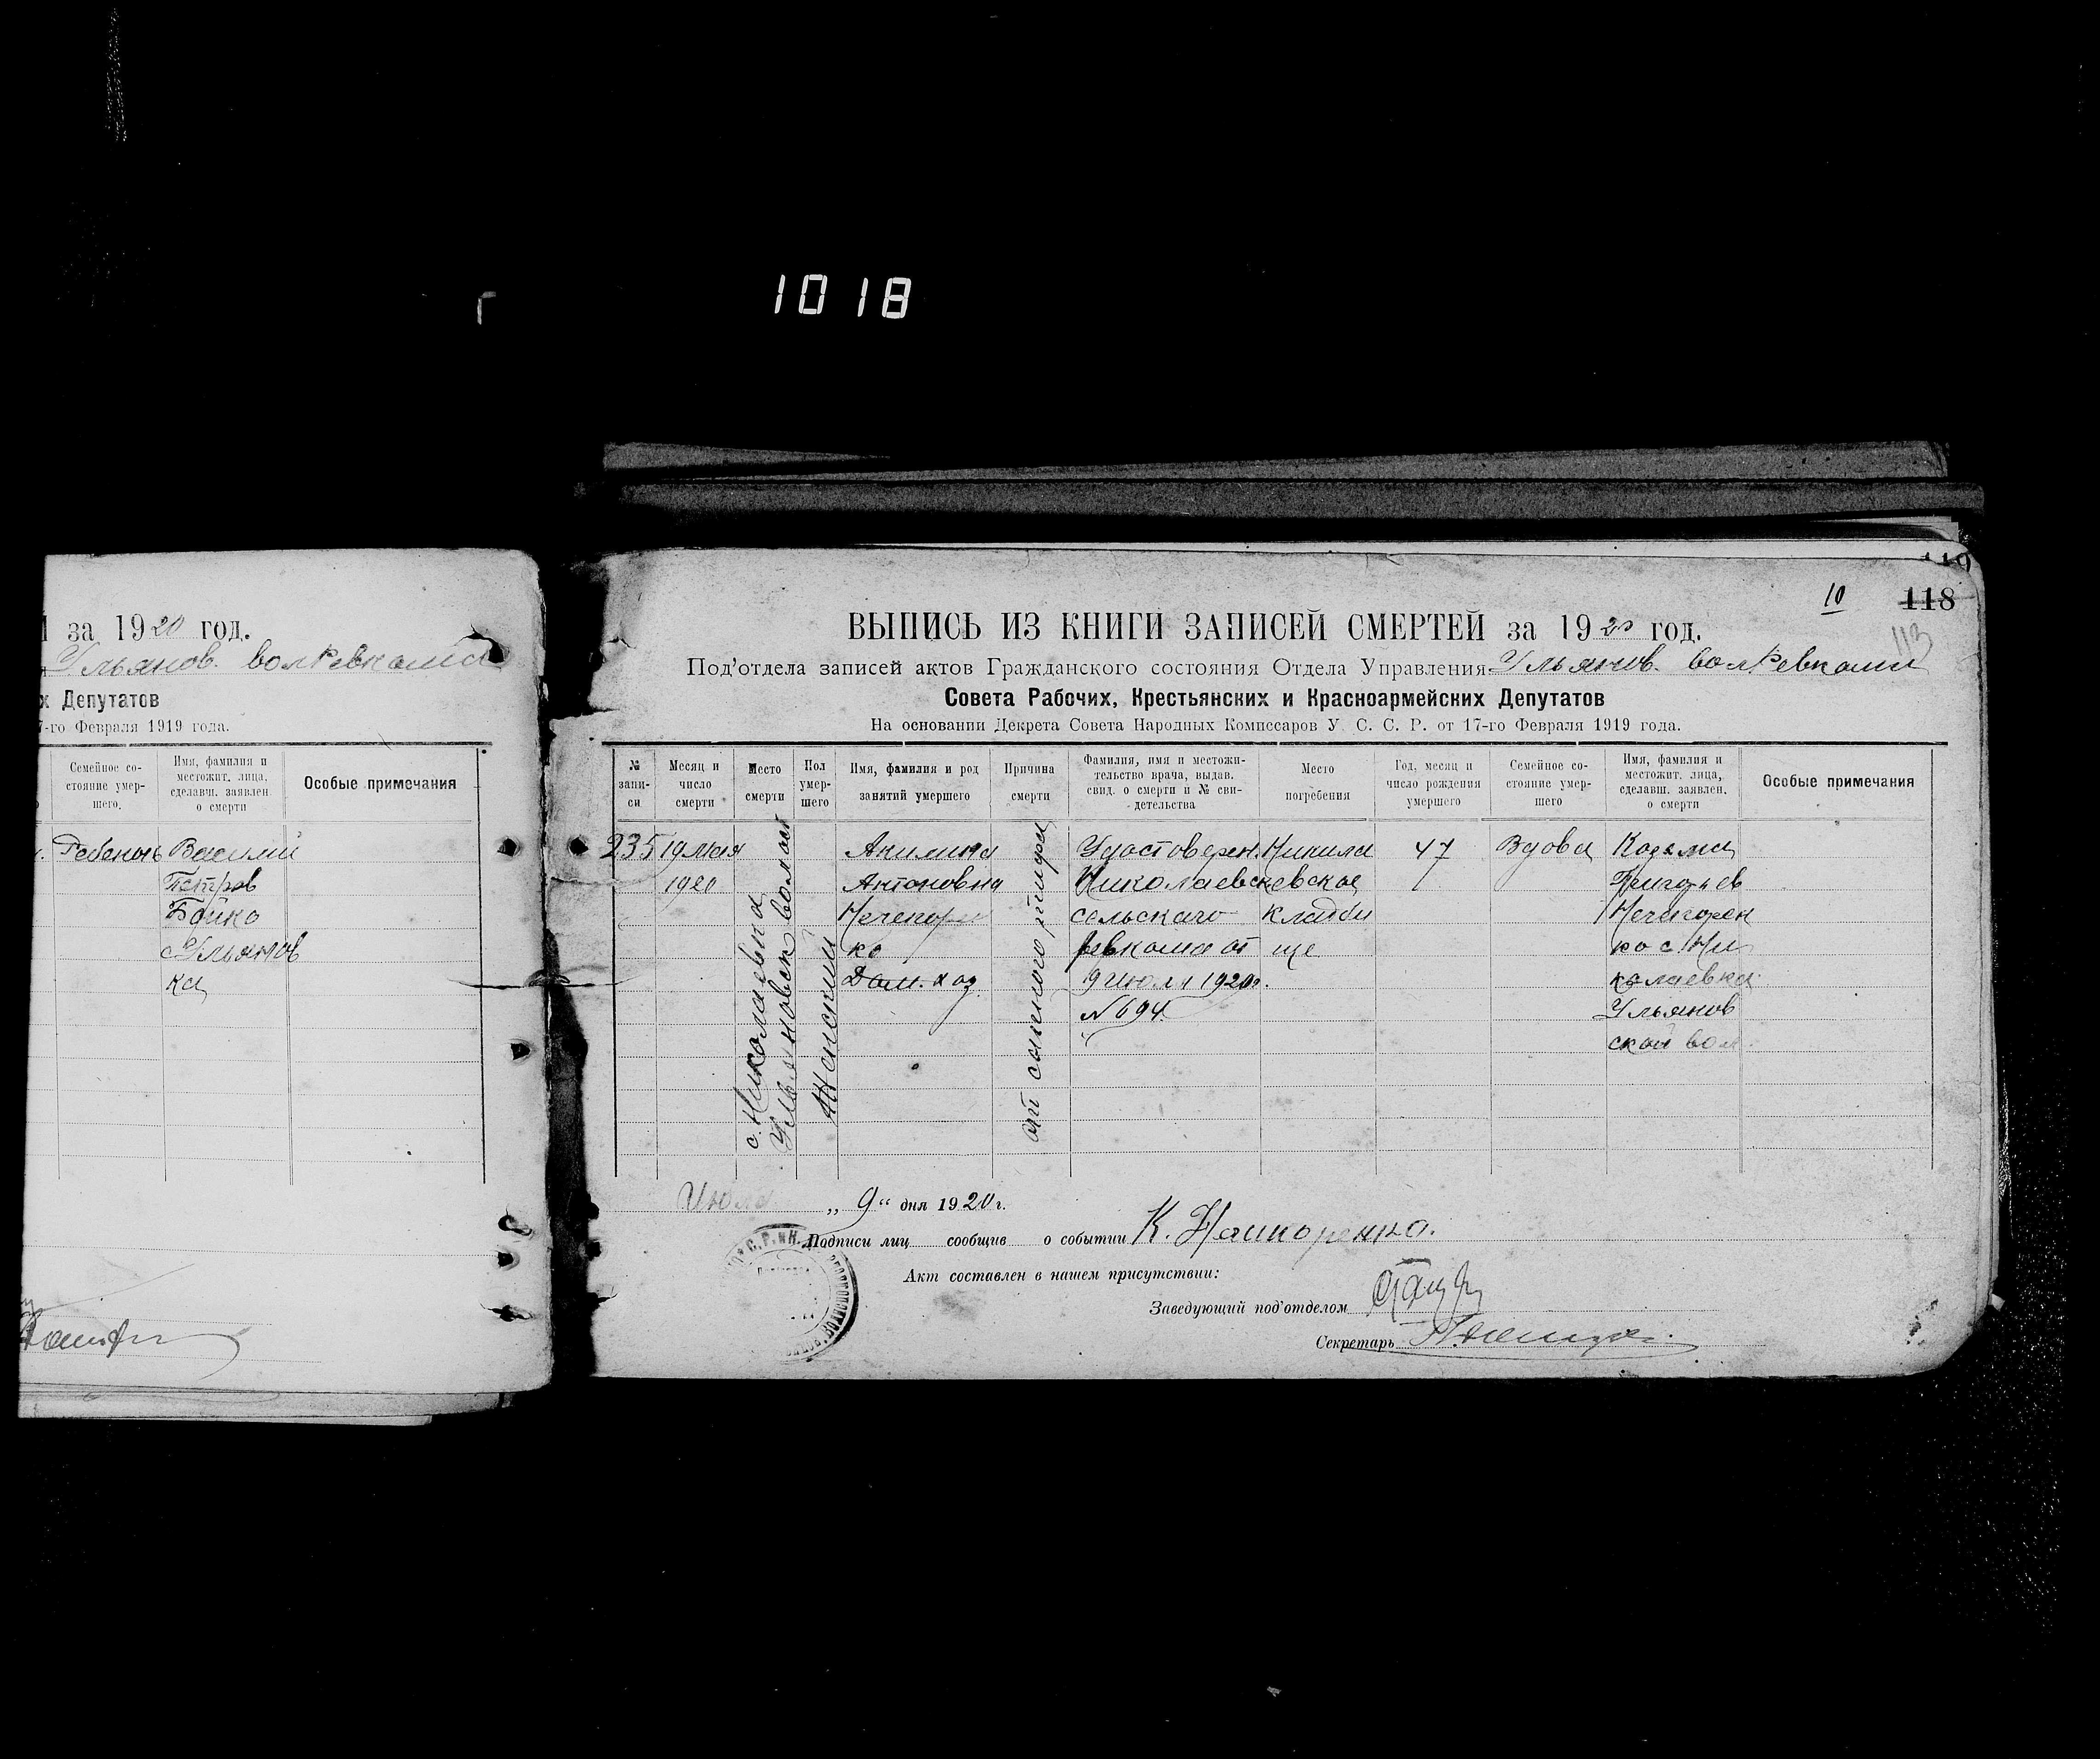 1018
за 1920 год.
Ульянов. волРевкома
х Депутатов
7-го Февраля 1919 года.
Семейное со-
стояние умер-
шего.
Имя, фамилия и
местожит. лица,
сделавш. заявлен.
о смерти
Особые примечания
Ребенок
Василий
Петров
Бойко
с. Ульянов
ка
10
118
113
ВЫПИСЬ ИЗ КНИГИ ЗАПИСЕЙ СМЕРТЕЙ за 1920 год.
Под'отдела записей актов Гражданского состояния Отдела Управления Ульянов. волРевкома
Совета Рабочих, Крестьянских и Красноармейских Депутатов
На основании Декрета Совета Народных Комиссаров У. С. С. Р. от 17-го Февраля 1919 года.
№
запи-
си
Месяц и
число
смерти
Место
смерти
Пол
умер-
шего
Имя, фамилия и род
занятий умершего
Причина
смерти
Фамилия, имя и местожи-
тельство врача, выдав.
свид. о смерти и № сви-
детельства
Место
погребения
Год, месяц и
число рождения
умершего
Семейное со-
стояние умер-
шего
Имя, фамилия и
местожит. лица,
сделавш. заявлен.
о смерти
Особые примечания
235
19 мая
1920
с. Николаевка
Ульяновск волост
Женский
Акилина
Антоновна
Нечепорен
ко
Дом. хоз.
от сыпного тифа
Удостоверен.
Николаевск
сельскаго
ревкома от
9 июля 1920г.
№ 694
Никола
евское
кладби
ще
47
Вдова
Козьма
Григорьев
Нечипорен
ко с. Ни
колаевка
Ульянов
ской вол.
Июля „ 9 “ дня 1920 г.
Подписи лиц сообщив о событии К.
Акт составлен в нашем присутствии:
Заведующий под'отделом
Секретарь